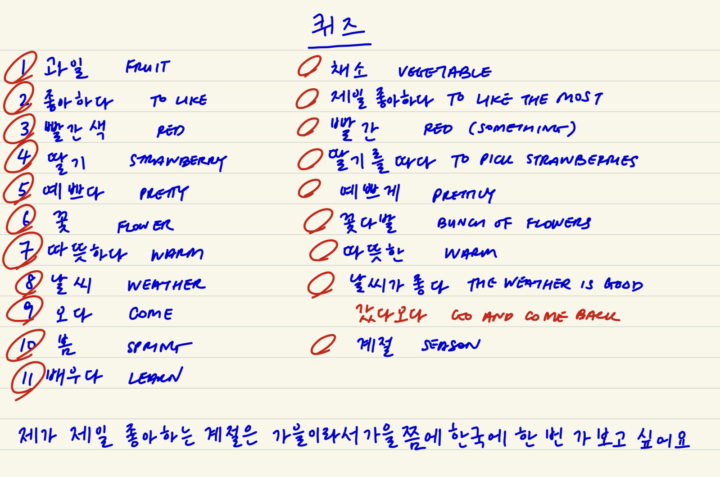 퀴즈
1 과일 FRUIT 채소 VEGETABLE
2 좋아하다 TO LIKE 제일 좋아하다 TO LIKE THE MOST
3 빨간색 RED 빨간 RED (SOMETHING)
4 딸기 STRAWBERRY 딸기를 따다 TO PICK STRAWBERRIES
5 예쁘다 PRETTY 예쁘게 PRETTILY
6 꽃 FLOWER 꽃다발 BUNCH OF FLOWERS
7 따뜻하다 WARM 따뜻한 WARM
8 날씨 WEATHER 날씨가 좋다 THE WEATHER IS GOOD
9 오다 COME 갔다오다 GO AND COME BACK
10 봄 SPRING 계절 SEASON
11 배우다 LEARN
제가 제일 좋아하는 계절은 가을이라서 가을쯤에 한국에 한 번 가보고 싶어요